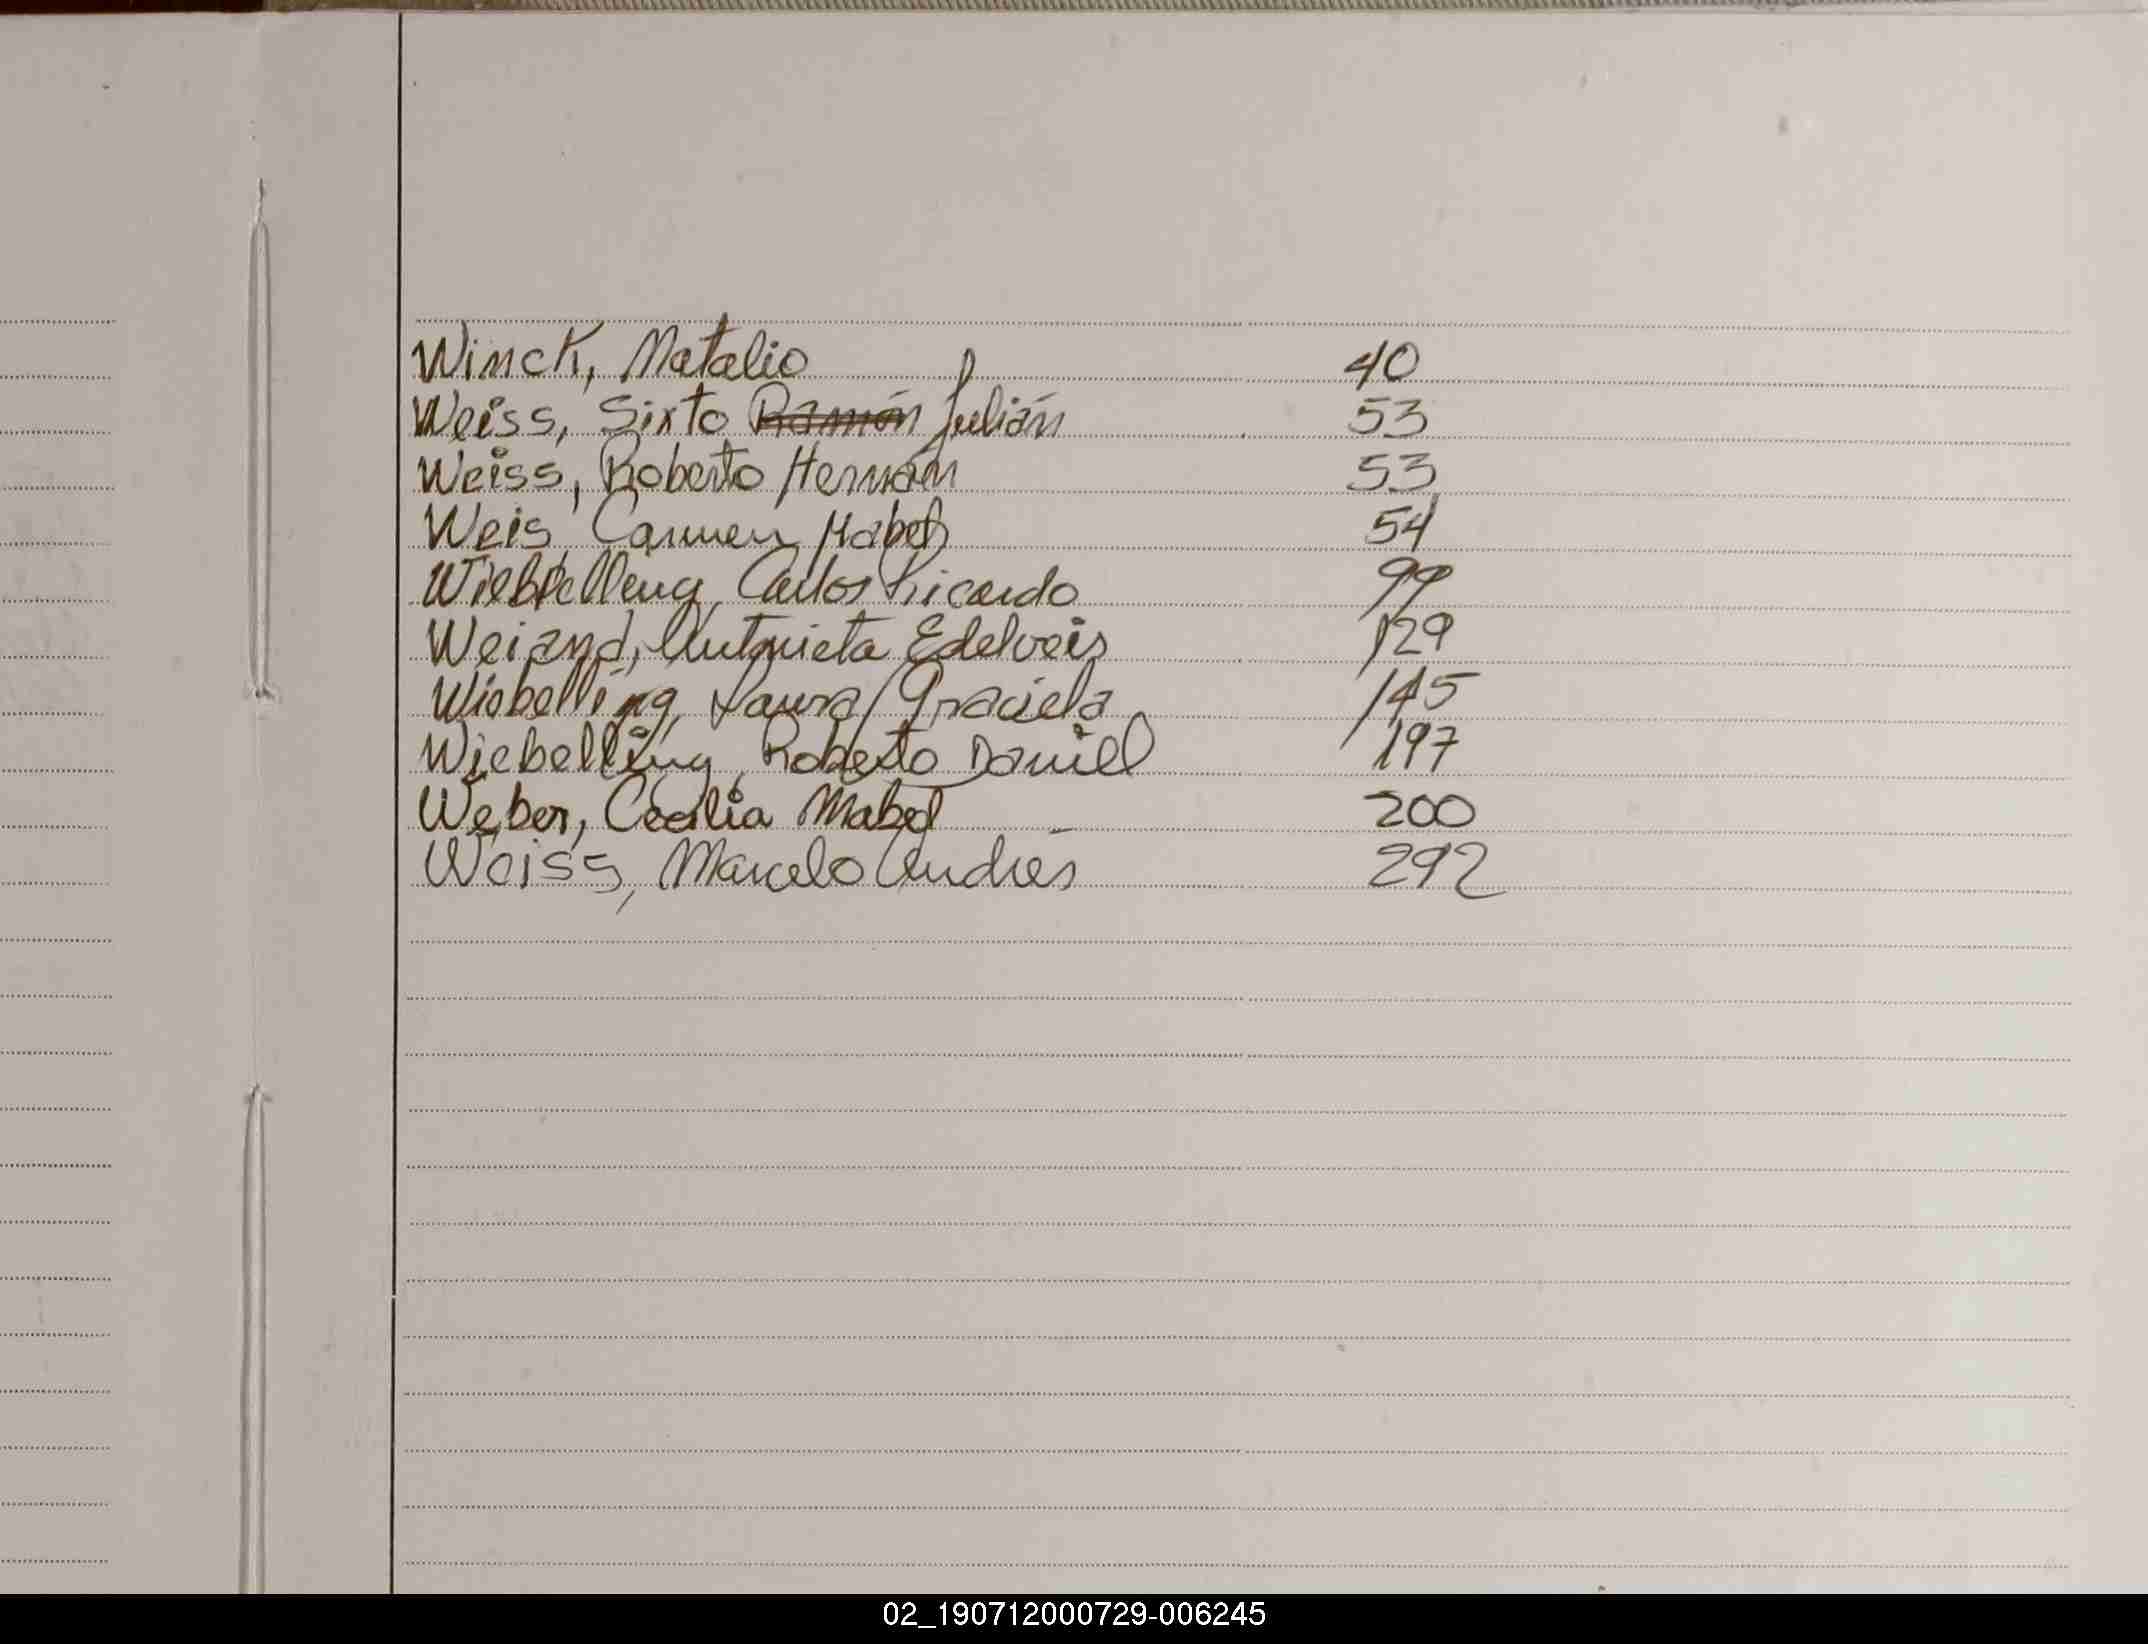 Winck, Natalio 40
Weiss, Sixto Ramón Julián 53
Weiss, Roberto Hernán 53
Weis, Carmen Mabel 54
Wiebelleng, Carlos Ricardo 99
Weiand, Antonieta Edelveis 129
Wiebelling, Laura Graciela 145
Wiebelling, Roberto Daniel 197
Weber, Cecilia Mabel 200
Weiss, Marcelo Andrés 292
02_190712000729-006245